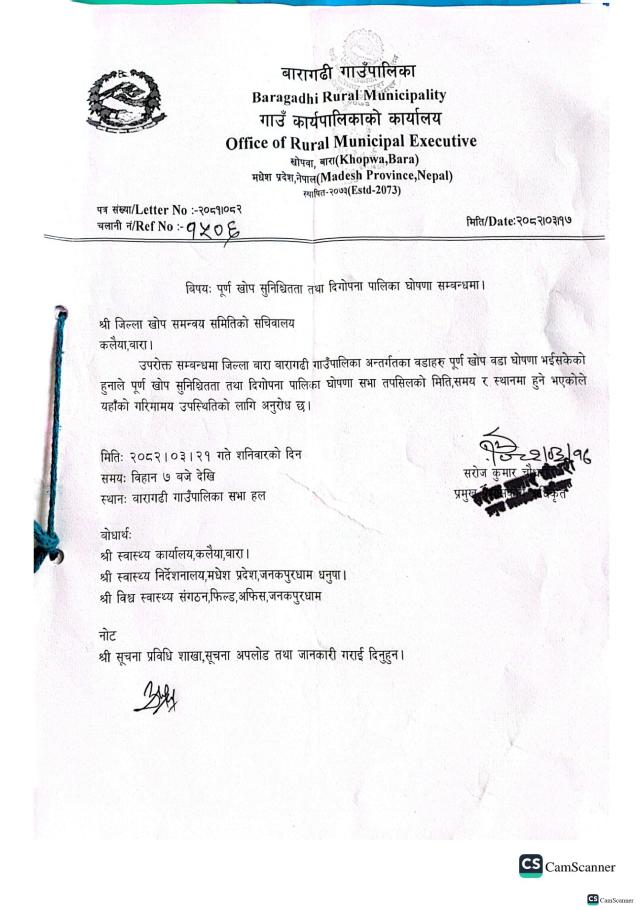 बारागढी गाउँपालिका
Baragadhi Rural Municipality
गाउँ कार्यपालिकाको कार्यालय
Office of Rural Municipal Executive
खोपवा, बारा(Khopwa,Bara)
मधेश प्रदेश,नेपाल(Madesh Province,Nepal)
स्थापित-२०७३(Estd-2073)
पत्र संख्या/Letter No :-२०८१।०८२
चलानी नं/Ref No :- १५०६
मिति/Date:२०८२।०३।१७
विषय: पूर्ण खोप सुनिश्चितता तथा दिगोपना पालिका घोषणा सम्बन्धमा।
श्री जिल्ला खोप समन्वय समितिको सचिवालय
कलैया,बारा।
उपरोक्त सम्बन्धमा जिल्ला बारा बारागढी गाउँपालिका अन्तर्गतका वडाहरु पूर्ण खोप वडा घोषणा भईसकेको
हुनाले पूर्ण खोप सुनिश्चितता तथा दिगोपना पालिका घोषणा सभा तपसिलको मिति,समय र स्थानमा हुने भएकोले
यहाँको गरिमामय उपस्थितिको लागि अनुरोध छ।
मितिः २०८२।०३।२१ गते शनिवारको दिन
समयः विहान ७ बजे देखि
स्थानः वारागढी गाउँपालिका सभा हल
सरोज कुमार चौधरी
प्रमुख
बोधार्थः
श्री स्वास्थ्य कार्यालय,कलैया,बारा।
श्री स्वास्थ्य निर्देशनालय,मधेश प्रदेश,जनकपुरधाम धनुषा।
श्री विश्व स्वास्थ्य संगठन,फिल्ड,अफिस,जनकपुरधाम
नोट
श्री सूचना प्रविधि शाखा,सूचना अपलोड तथा जानकारी गराई दिनुहुन।
CS CamScanner
CS CamScanner